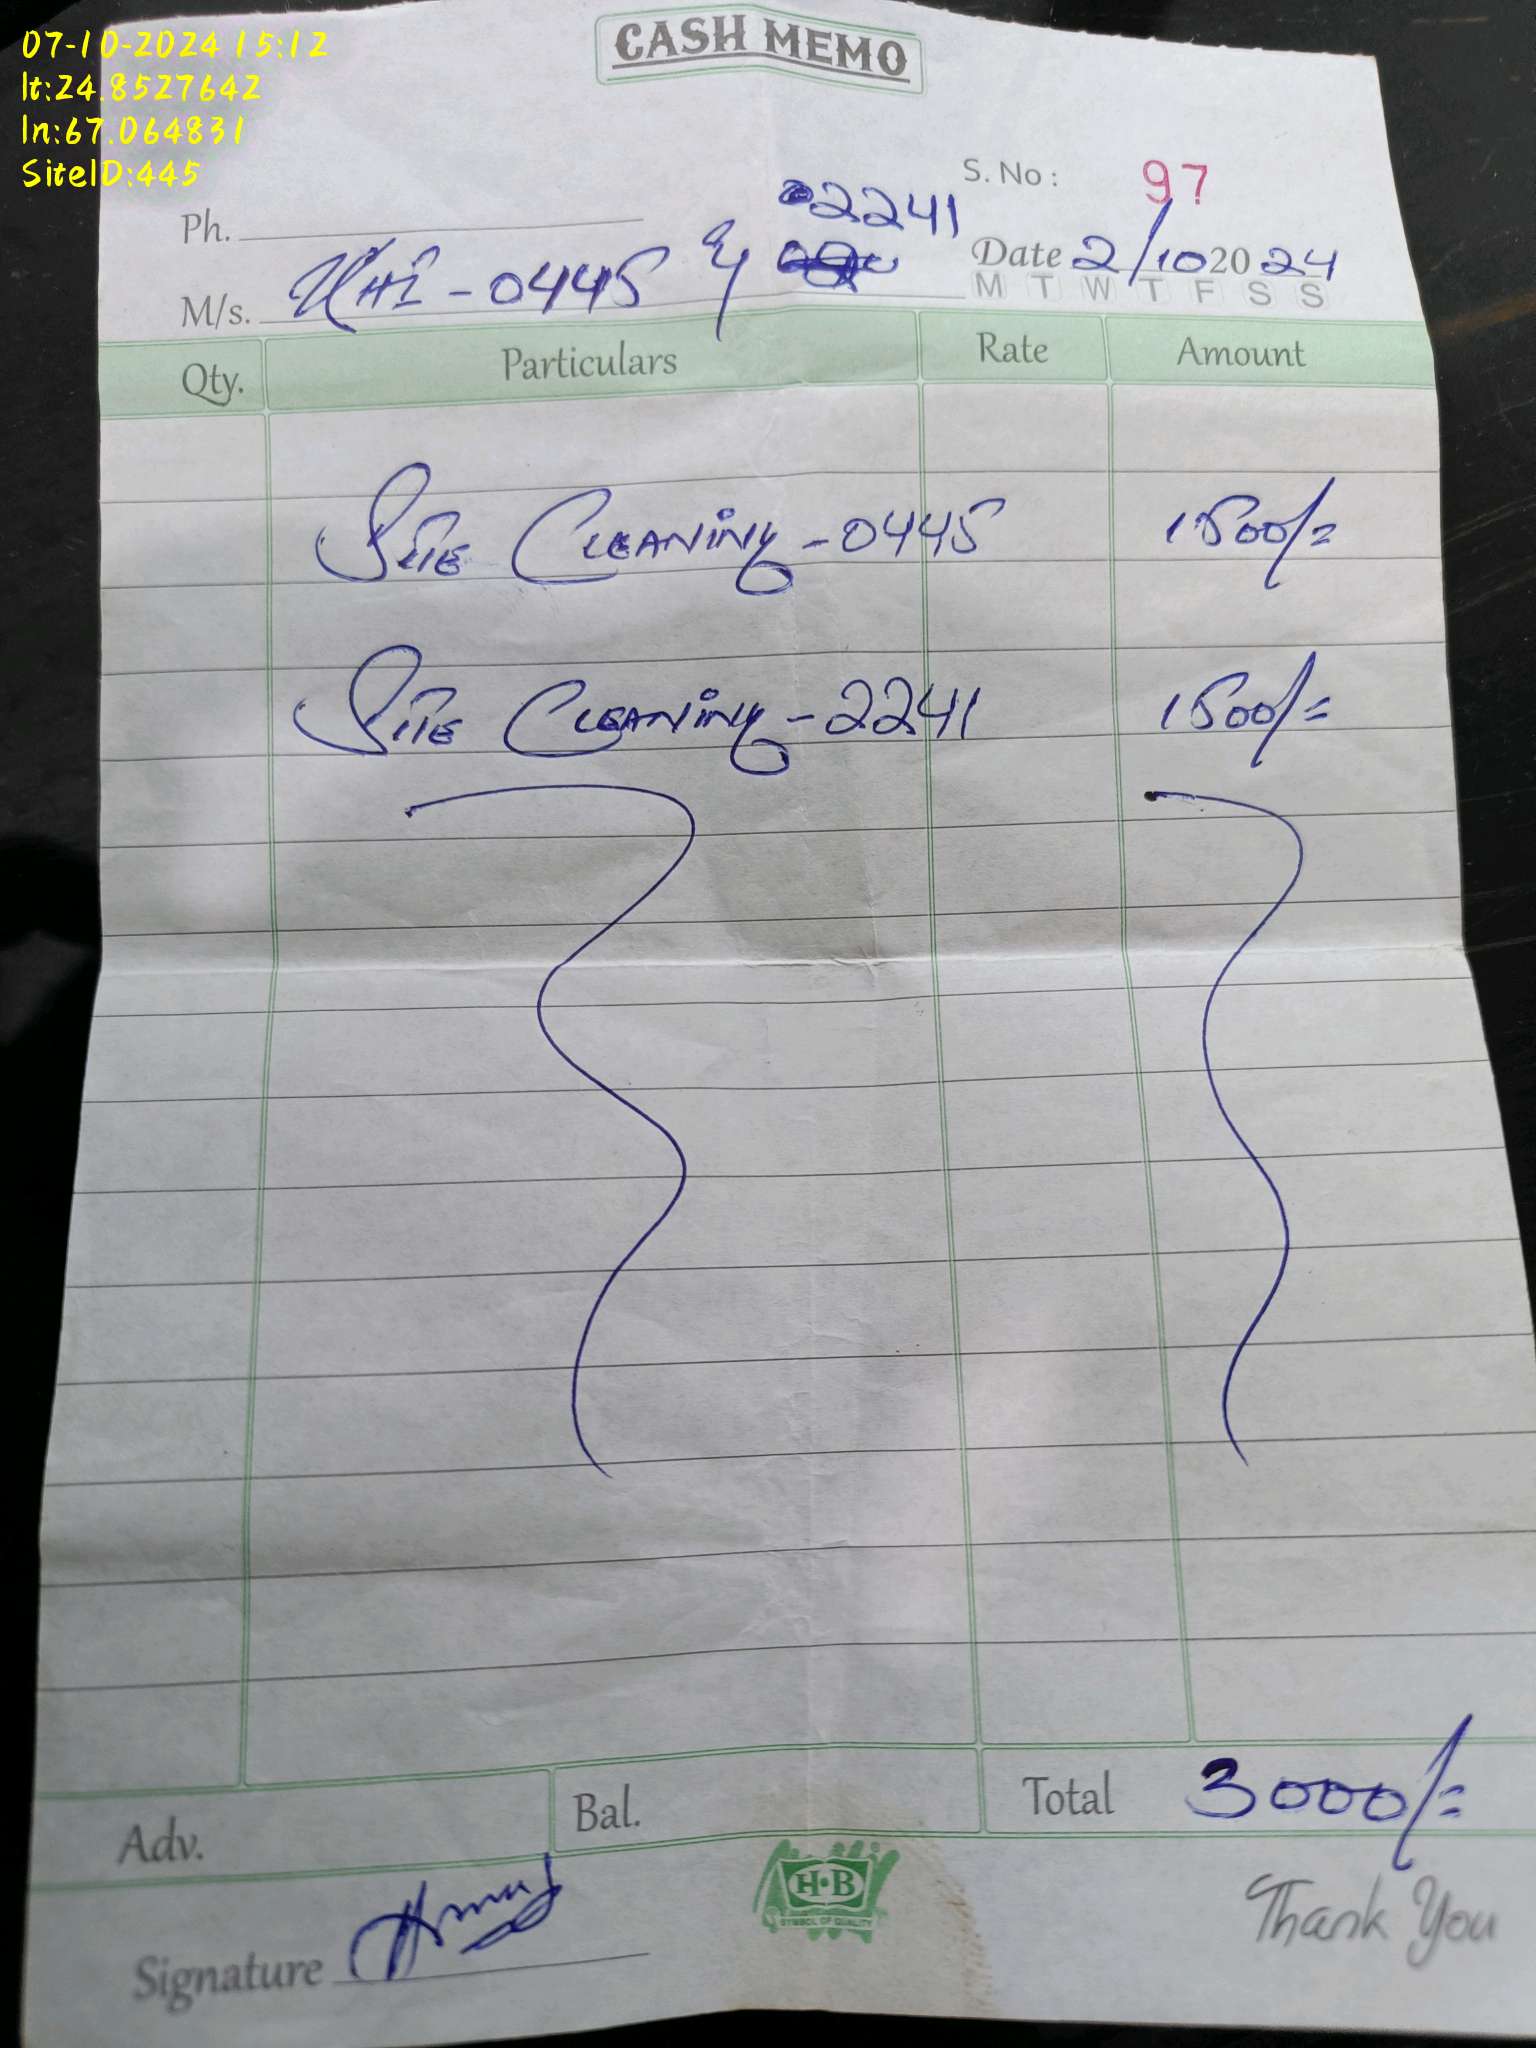 07-10-2024 15:12
lt:24.8527642
ln:67.064831
SiteID:445
CASH MEMO
S. No : 97
Ph.
2241
Date 2/10 2024
M T W T F S S
M/s. KHI-0445 &
Qty. Particulars Rate Amount
SITE CLEANING - 0445 1500/=
SITE CLEANING - 2241 1500/=
Adv. Bal. Total 3000/=
H·B
SYMBOL OF QUALITY
Thank You
Signature